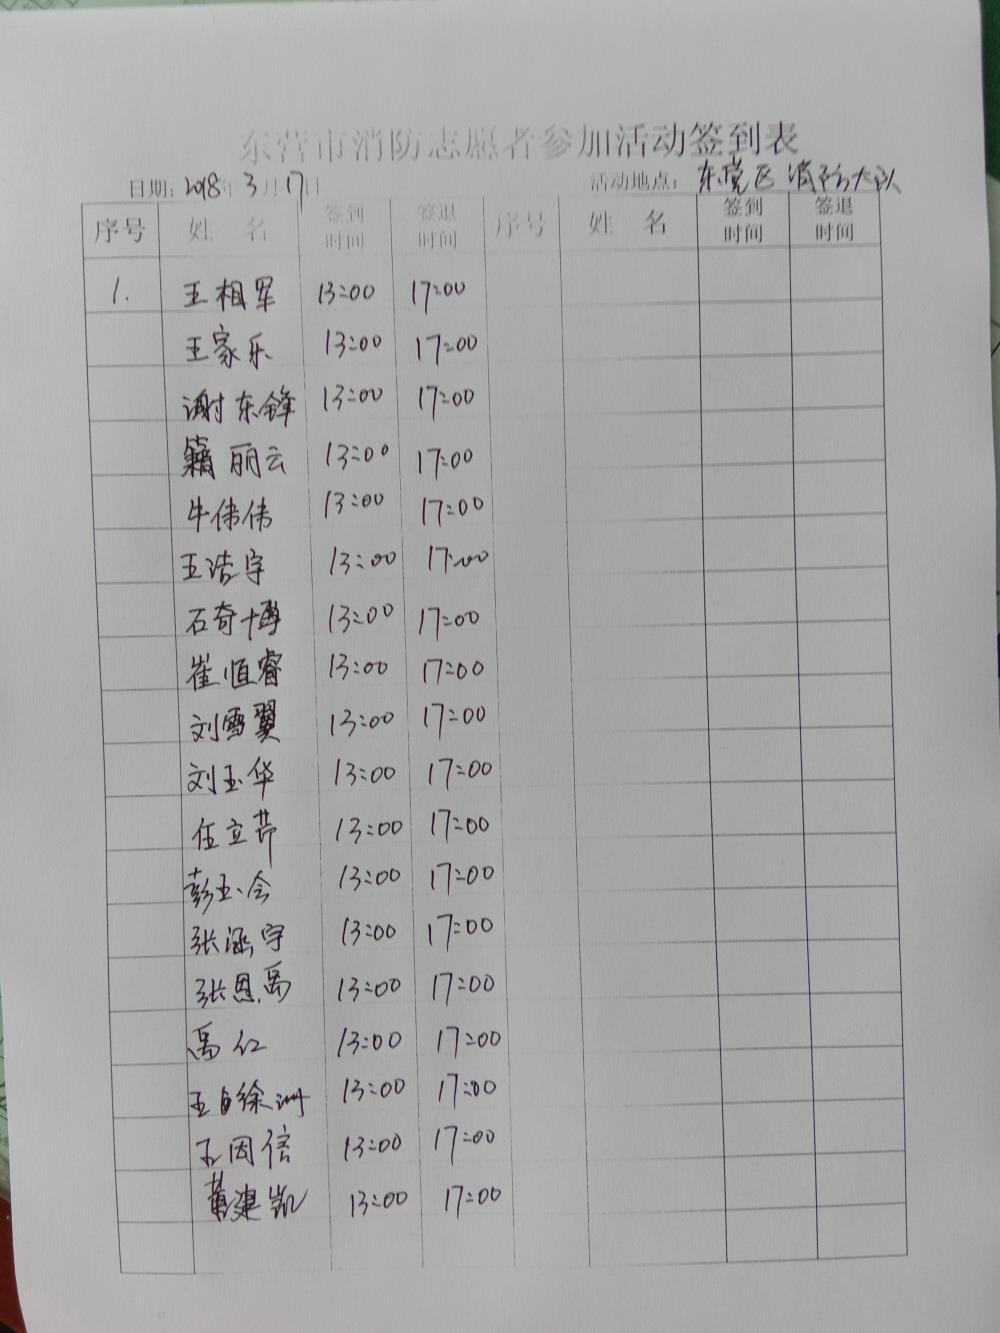 东营市消防志愿者参加活动签到表
日期：2018年3月17日 活动地点：东营区消防大队
序号 姓名 签到时间 签退时间 序号 姓名 签到时间 签退时间
1. 王相军 13:00 17:00
王家乐 13:00 17:00
谢东锋 13:00 17:00
籍丽云 13:00 17:00
牛伟伟 13:00 17:00
王浩宇 13:00 17:00
石奇博 13:00 17:00
崔恒睿 13:00 17:00
刘雪翼 13:00 17:00
刘玉华 13:00 17:00
任立芹 13:00 17:00
彭玉会 13:00 17:00
张涵宇 13:00 17:00
张恩禹 13:00 17:00
禹红 13:00 17:00
王徐洲 13:00 17:00
王因信 13:00 17:00
建凯 13:00 17:00